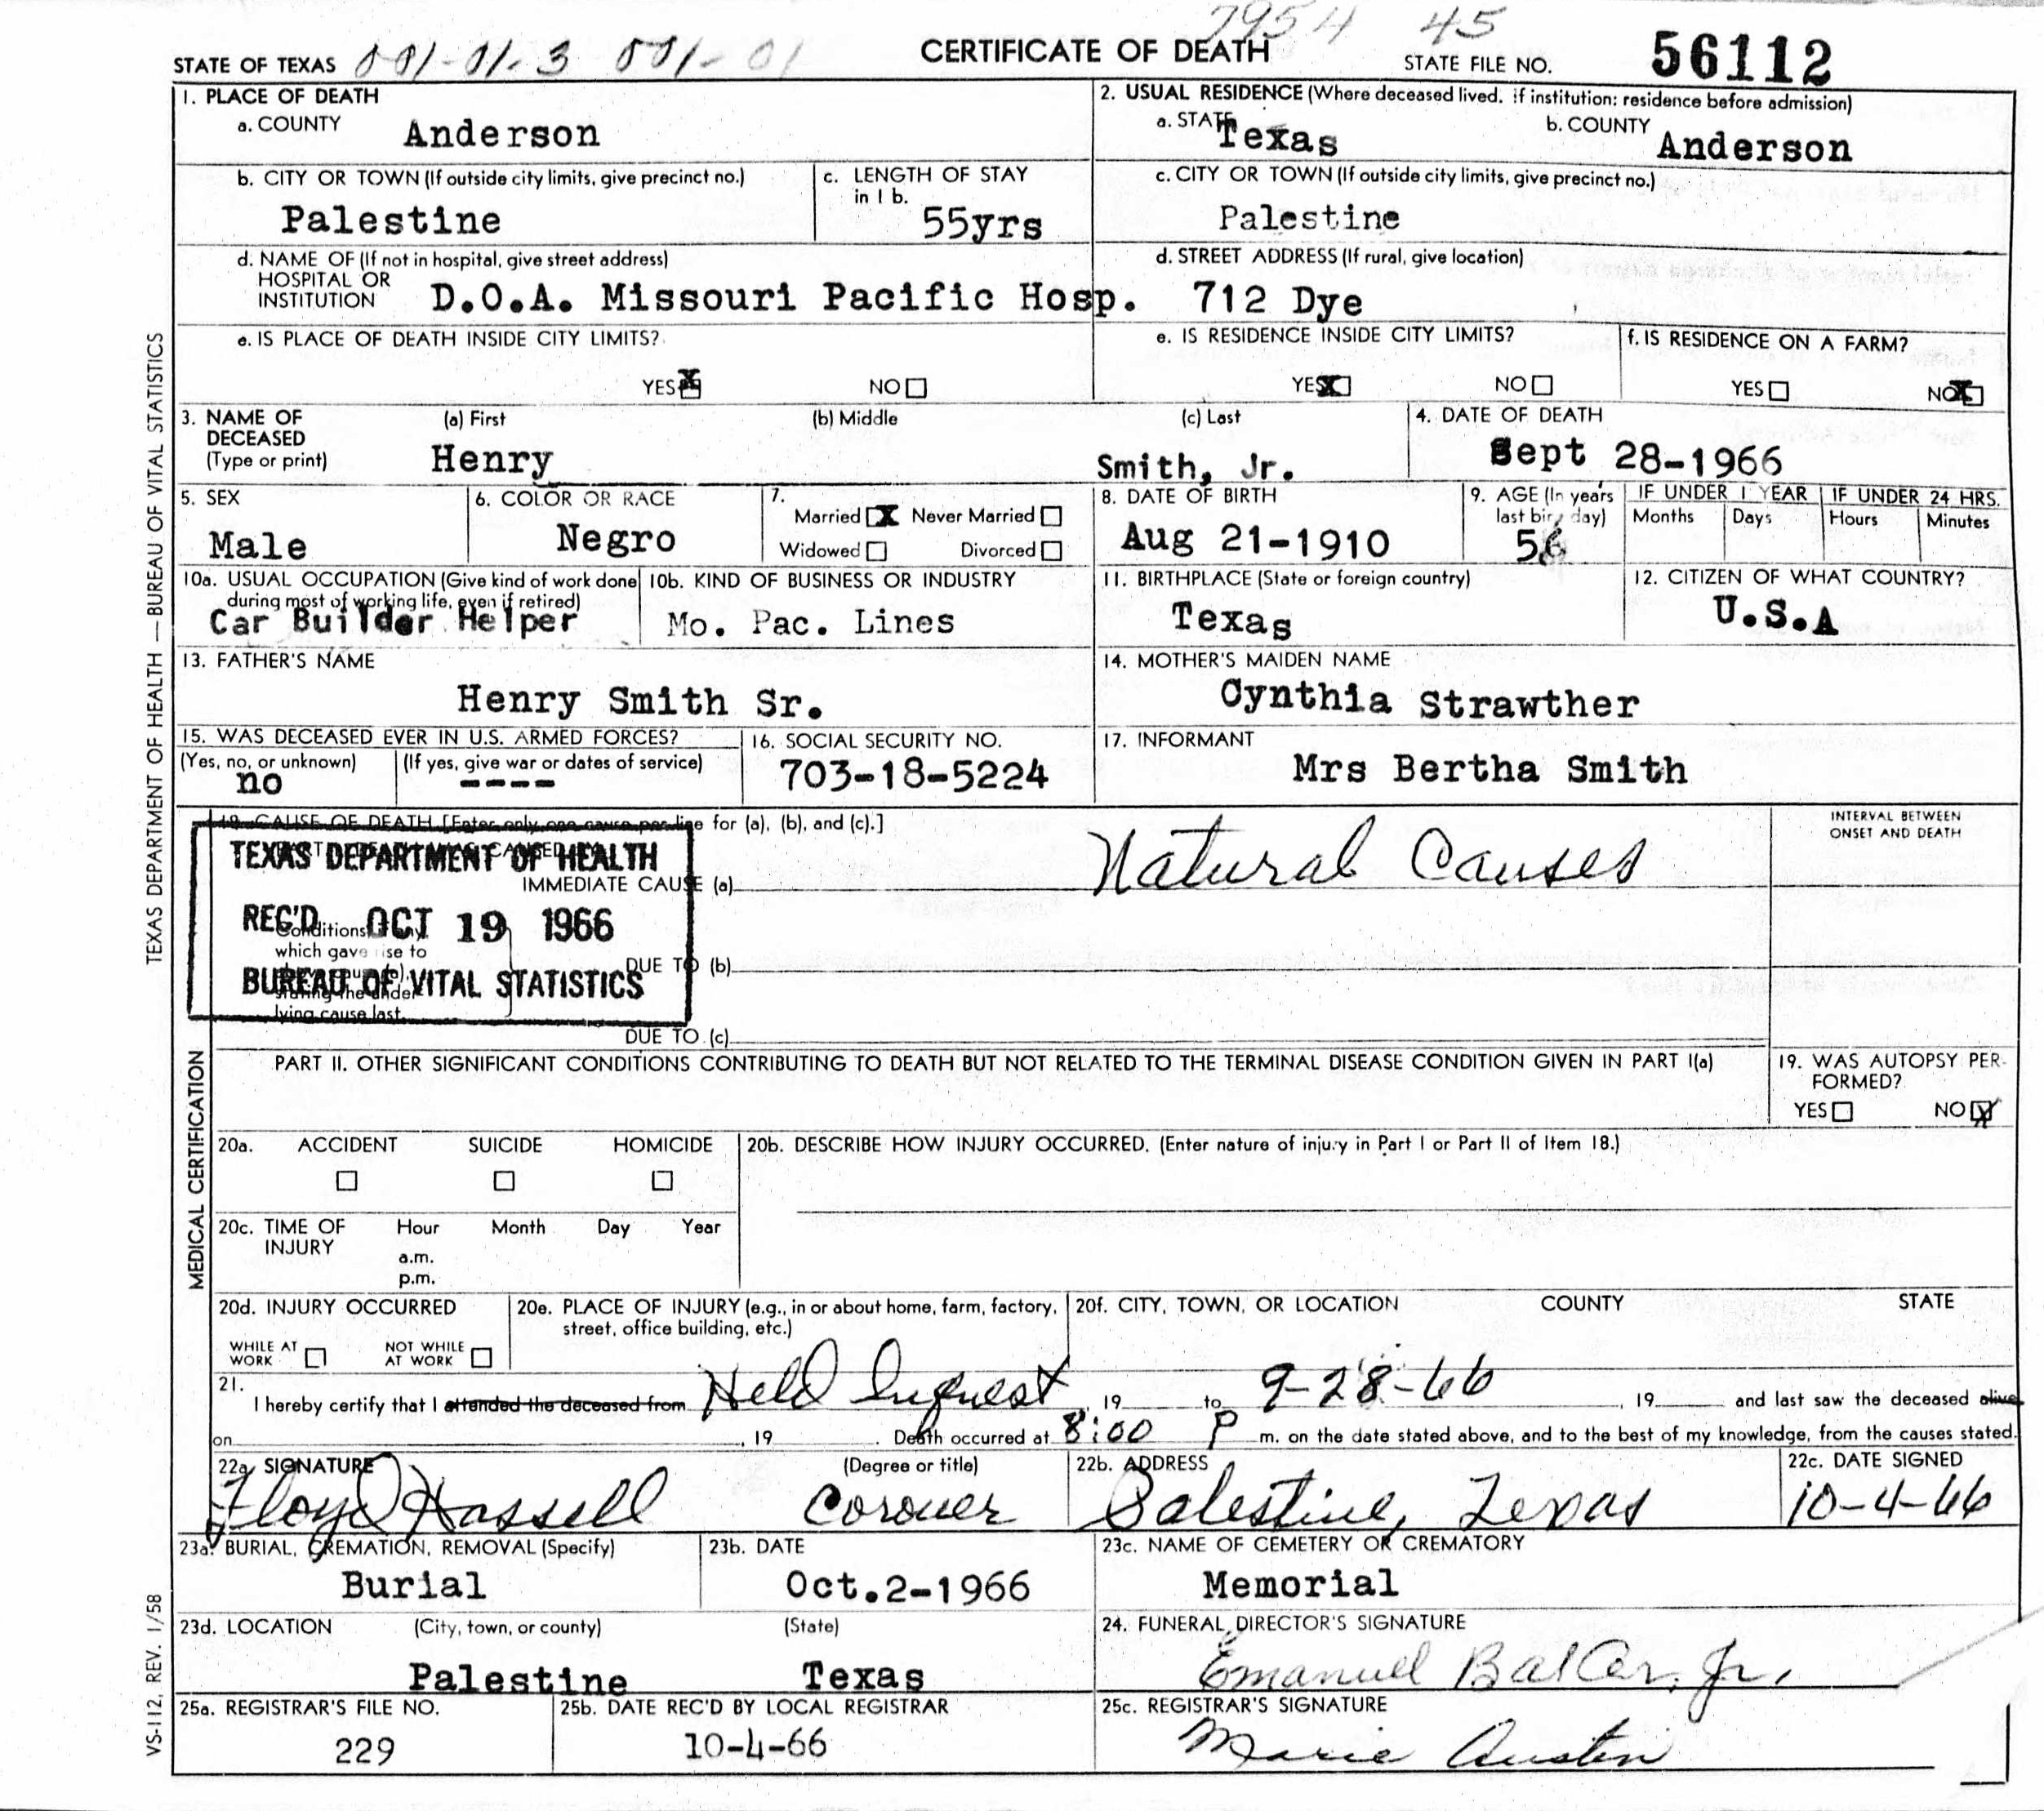 7954 45
STATE OF TEXAS 001-01-3 001-01 CERTIFICATE OF DEATH STATE FILE NO. 56112
1. PLACE OF DEATH
a. COUNTY Anderson
2. USUAL RESIDENCE (Where deceased lived. if institution: residence before admission)
a. STATE Texas b. COUNTY Anderson
b. CITY OR TOWN (If outside city limits, give precinct no.) Palestine
c. LENGTH OF STAY in 1 b. 55yrs
c. CITY OR TOWN (If outside city limits, give precinct no.) Palestine
d. NAME OF (If not in hospital, give street address)
HOSPITAL OR
INSTITUTION D.O.A. Missouri Pacific Hosp.
d. STREET ADDRESS (If rural, give location)
712 Dye
e. IS PLACE OF DEATH INSIDE CITY LIMITS?
YES X NO
e. IS RESIDENCE INSIDE CITY LIMITS?
YES X NO
f. IS RESIDENCE ON A FARM?
YES NO X
3. NAME OF DECEASED (Type or print)
(a) First (b) Middle (c) Last
Henry Smith, Jr.
4. DATE OF DEATH
Sept 28-1966
5. SEX
Male
6. COLOR OR RACE
Negro
7.
Married X Never Married
Widowed Divorced
8. DATE OF BIRTH
Aug 21-1910
9. AGE (In years last birthday)
56
IF UNDER 1 YEAR IF UNDER 24 HRS.
Months Days Hours Minutes
10a. USUAL OCCUPATION (Give kind of work done
during most of working life, even if retired)
Car Builder Helper
10b. KIND OF BUSINESS OR INDUSTRY
Mo. Pac. Lines
11. BIRTHPLACE (State or foreign country)
Texas
12. CITIZEN OF WHAT COUNTRY?
U.S.A
13. FATHER'S NAME
Henry Smith Sr.
14. MOTHER'S MAIDEN NAME
Cynthia Strawther
15. WAS DECEASED EVER IN U.S. ARMED FORCES?
(Yes, no, or unknown) (If yes, give war or dates of service)
no ----
16. SOCIAL SECURITY NO.
703-18-5224
17. INFORMANT
Mrs Bertha Smith
18. CAUSE OF DEATH [Enter only one cause per line for (a), (b), and (c).]
INTERVAL BETWEEN
ONSET AND DEATH
TEXAS DEPARTMENT OF HEALTH
REC'D OCT 19 1966
BUREAU OF VITAL STATISTICS
IMMEDIATE CAUSE (a) Natural Causes
Conditions
which gave rise to
stating the under
lying cause last.
DUE TO (b)
DUE TO (c)
PART II. OTHER SIGNIFICANT CONDITIONS CONTRIBUTING TO DEATH BUT NOT RELATED TO THE TERMINAL DISEASE CONDITION GIVEN IN PART I(a)
19. WAS AUTOPSY PER-
FORMED?
YES NO X
20a. ACCIDENT SUICIDE HOMICIDE
20b. DESCRIBE HOW INJURY OCCURRED. (Enter nature of injury in Part I or Part II of Item 18.)
20c. TIME OF INJURY Hour Month Day Year
a.m.
p.m.
20d. INJURY OCCURRED
WHILE AT WORK NOT WHILE AT WORK
20e. PLACE OF INJURY (e.g., in or about home, farm, factory,
street, office building, etc.)
20f. CITY, TOWN, OR LOCATION COUNTY STATE
21.
I hereby certify that I attended the deceased from Held Inquest, 19 to 9-28-66, 19 and last saw the deceased alive
on , 19 . Death occurred at 8:00 P m. on the date stated above, and to the best of my knowledge, from the causes stated.
22a. SIGNATURE (Degree or title)
Floyd Hassell Coroner
22b. ADDRESS
Palestine, Texas
22c. DATE SIGNED
10-4-66
23a. BURIAL, CREMATION, REMOVAL (Specify)
Burial
23b. DATE
Oct.2-1966
23c. NAME OF CEMETERY OR CREMATORY
Memorial
23d. LOCATION (City, town, or county) (State)
Palestine Texas
24. FUNERAL DIRECTOR'S SIGNATURE
Emanuell Jr.
25a. REGISTRAR'S FILE NO.
229
25b. DATE REC'D BY LOCAL REGISTRAR
10-4-66
25c. REGISTRAR'S SIGNATURE
Marie Austin
TEXAS DEPARTMENT OF HEALTH — BUREAU OF VITAL STATISTICS
MEDICAL CERTIFICATION
VS-112, REV. 1/58